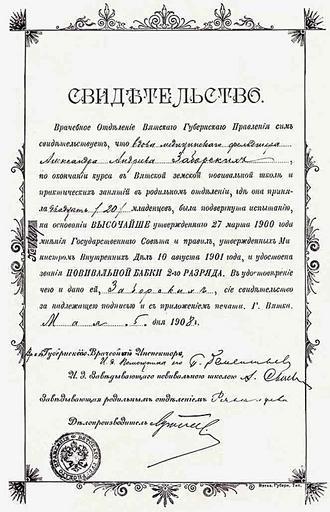 СВИДѢТЕЛЬСТВО.
Врачебное Отдѣленіе Вятскаго Губернскаго Правленія симъ
свидѣтельствуетъ, что вдова медицинскаго фельдшера
Александра Андреева Заборскихъ,
по окончаніи курса въ Вятской земской повивальной школѣ и
практическихъ занятій въ родильномъ отдѣленіи, гдѣ она приня-
ла двадцать /20/ младенцевъ, была подвергнута испытанію,
на основаніи ВЫСОЧАЙШЕ утвержденнаго 27 марта 1900 года
мнѣнія Государственнаго Совѣта и правилъ, утвержденныхъ Ми
нистромъ Внутреннихъ Дѣлъ 10 августа 1901 года, и удостоена
званія ПОВИВАЛЬНОЙ БАБКИ 2-го РАЗРЯДА. Въ удостовѣре
ніе чего и дано ей, Заборскихъ, сіе свидѣтельство
за надлежащею подписью и съ приложеніемъ печати. Г. Вятка.
Мая 5 дня 1908 г.
Губернскій Врачебный Инспекторъ
И. Д. Завѣдывающаго повивальною школою А.
Завѣдывающая родильнымъ отдѣленіемъ
Дѣлопроизводитель
Вятка. Губерн. Тип.